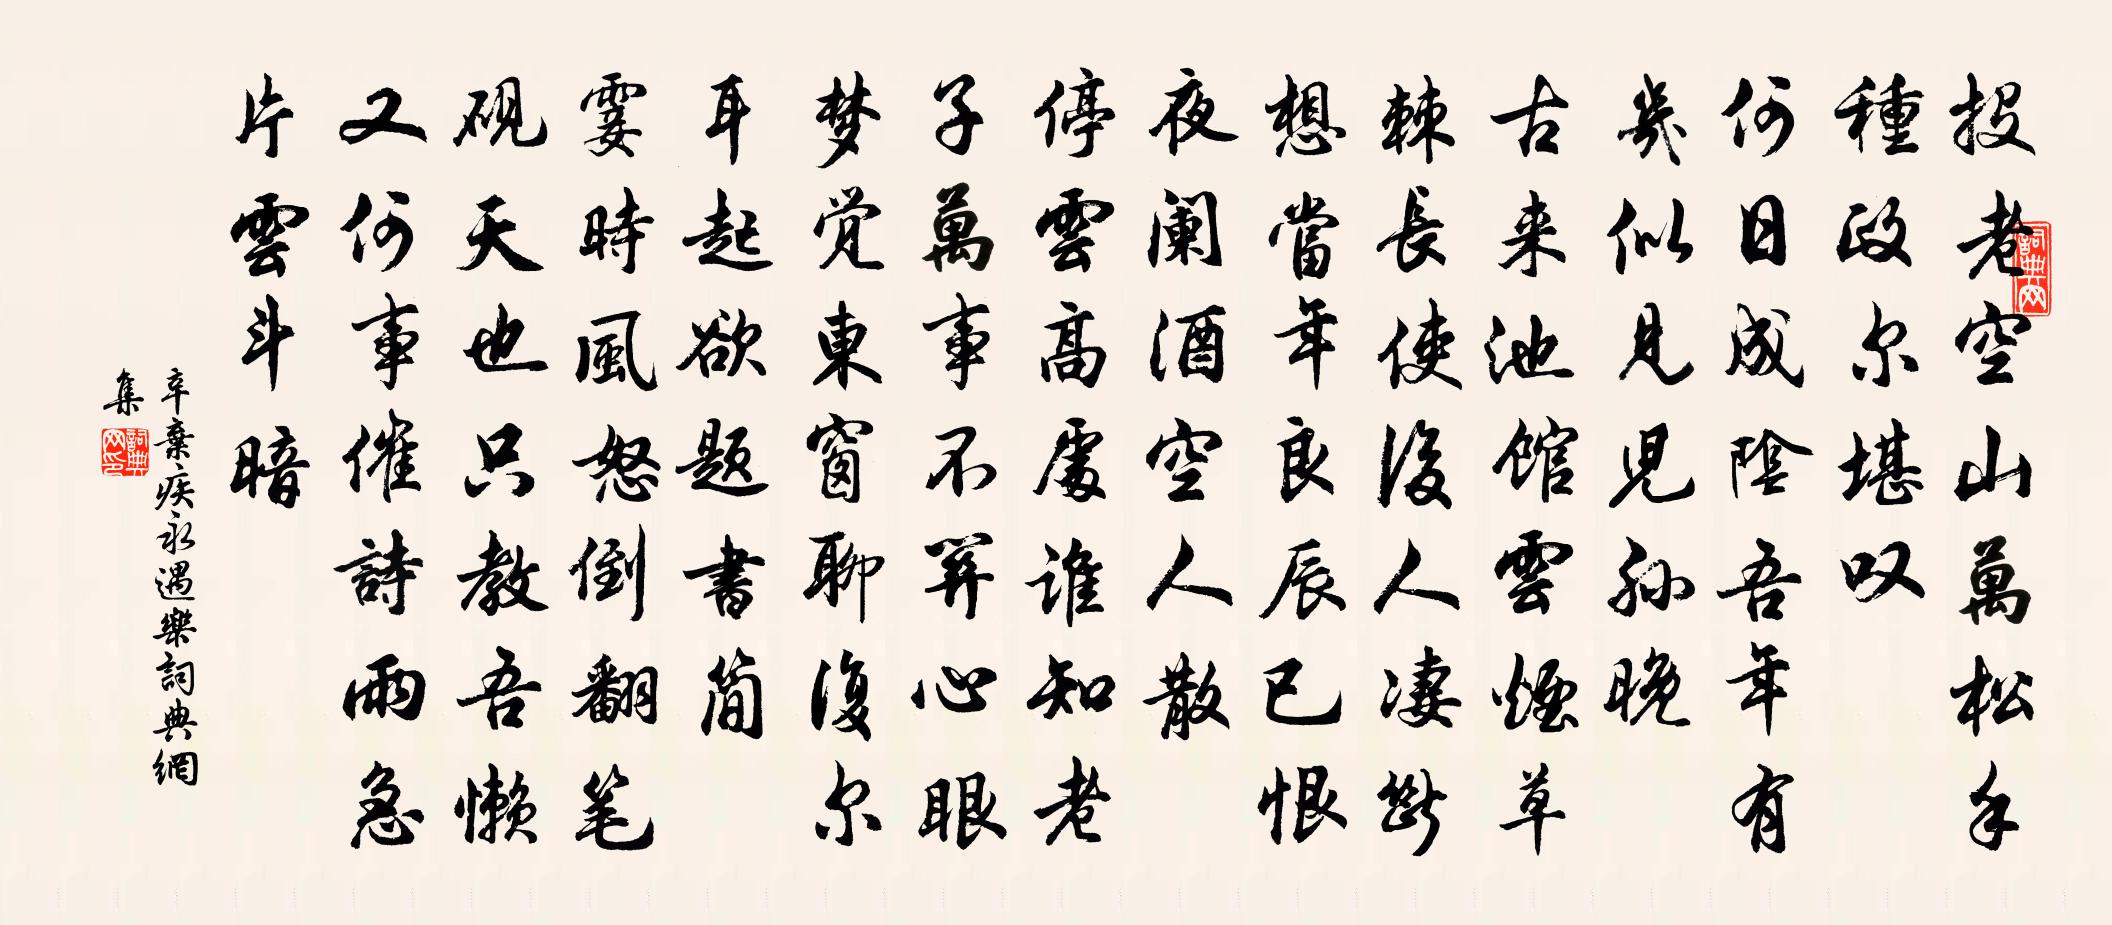 投老空山萬松手
種政尔堪叹
何日成陰吾年有
幾似見兒孫晚
古来池館雲煙草
棘長使後人凄斷
想當年良辰已恨
夜阑酒空人散
停雲高處誰知老
子萬事不關心眼
梦觉東窗聊復尔
耳起欲题書简
霎時風怒倒翻笔
硯天也只教吾懒
又何事催詩雨急
片雲斗暗
辛棄疾永遇樂詞典網
集
詞典网
詞典网印